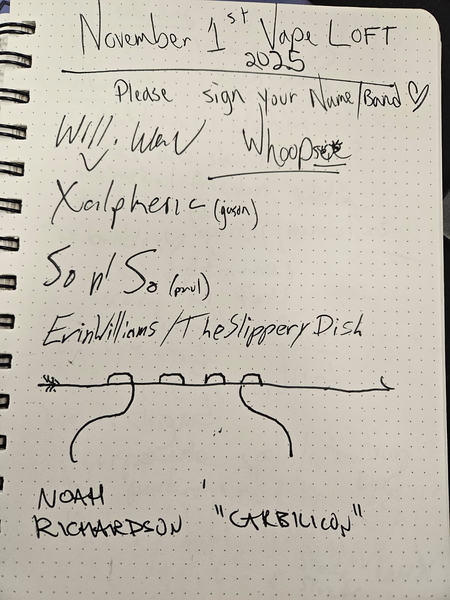 November 1st Vape LOFT
2025
Please sign your Name/Band ♡
Will. Wav Whoops
Xalpheric (jason)
So n' So (paul)
Erin Williams / The Slippery Dish
NOAH
RICHARDSON "CARBILICON"